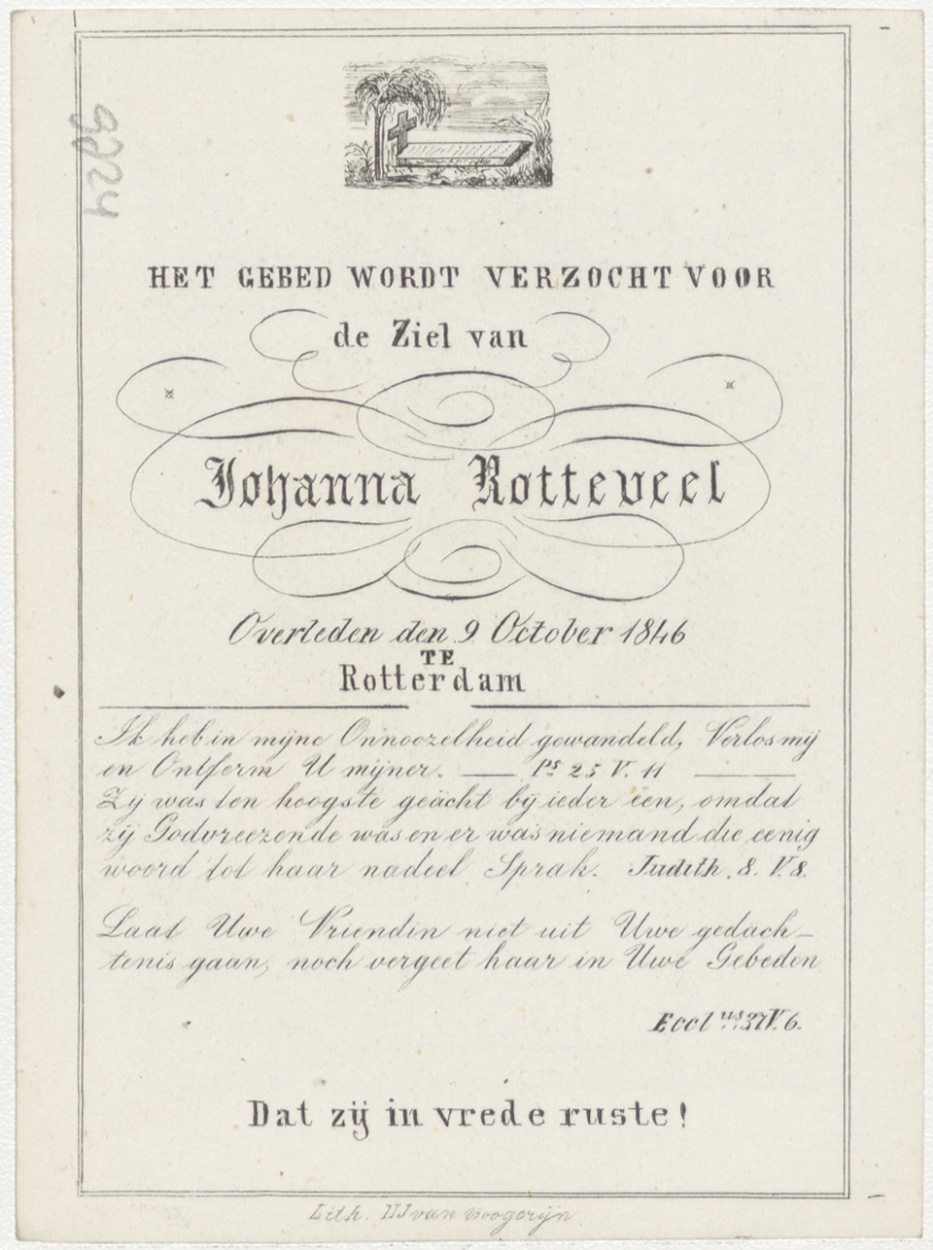 9724
HET GEBED WORDT VERZOCHT VOOR
de Ziel van
Johanna Rotteveel
Overleden den 9 October 1846
TE
Rotterdam
Ik heb in mijne Onnoozelheid gewandeld, Verlos mij
en Ontferm U mijner. — Ps 25 V. 11 —
Zij was ten hoogste geächt bij ieder een, omdat
zij Godvreezende was en er was niemand die eenig
woord tot haar nadeel Sprak. Judith. 8. V. 8.
Laat Uwe Vriendin niet uit Uwe gedach-
tenis gaan, noch vergeet haar in Uwe Gebeden
Eccl us 37 V. 6.
Dat zij in vrede ruste!
Lith. van